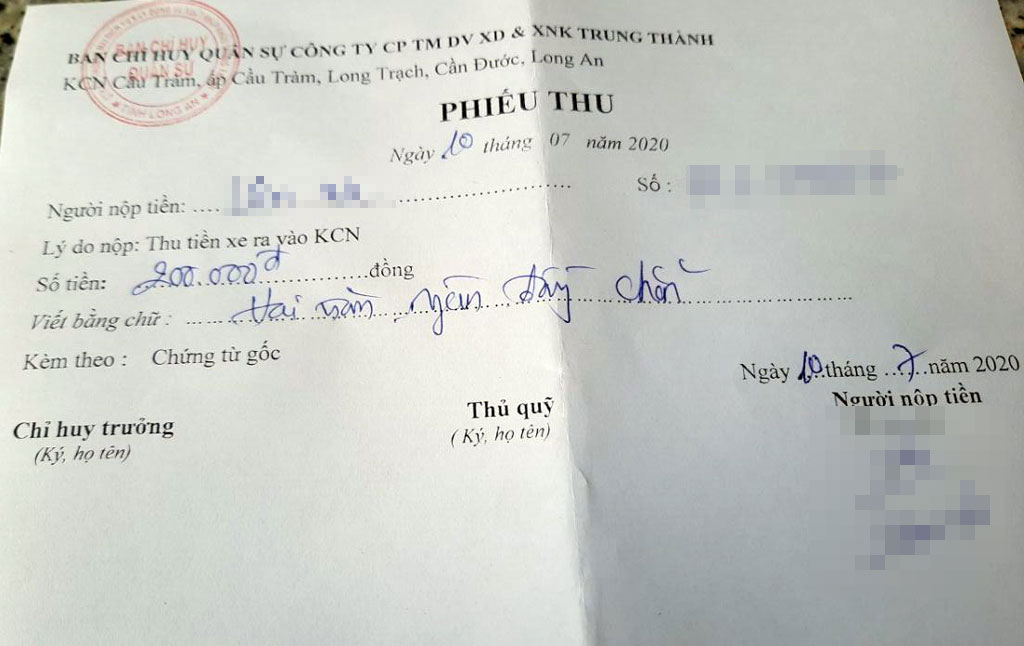 BAN CHỈ HUY QUÂN SỰ CÔNG TY CP TM DV XD & XNK TRUNG THÀNH
KCN Cầu Tràm, ấp Cầu Tràm, Long Trạch, Cần Đước, Long An
BAN CHỈ HUY
QUÂN SỰ
TỈNH LONG AN
PHIẾU THU
Ngày 10 tháng 07 năm 2020
Người nộp tiền: .... Số :
Lý do nộp: Thu tiền xe ra vào KCN
Số tiền: 200.000đ đồng
Viết bằng chữ : Hai trăm ngàn đồng chẵn
Kèm theo : Chứng từ gốc
Ngày 10 tháng 7 năm 2020
Chỉ huy trưởng Thủ quỹ Người nộp tiền
(Ký, họ tên) ( Ký, họ tên)